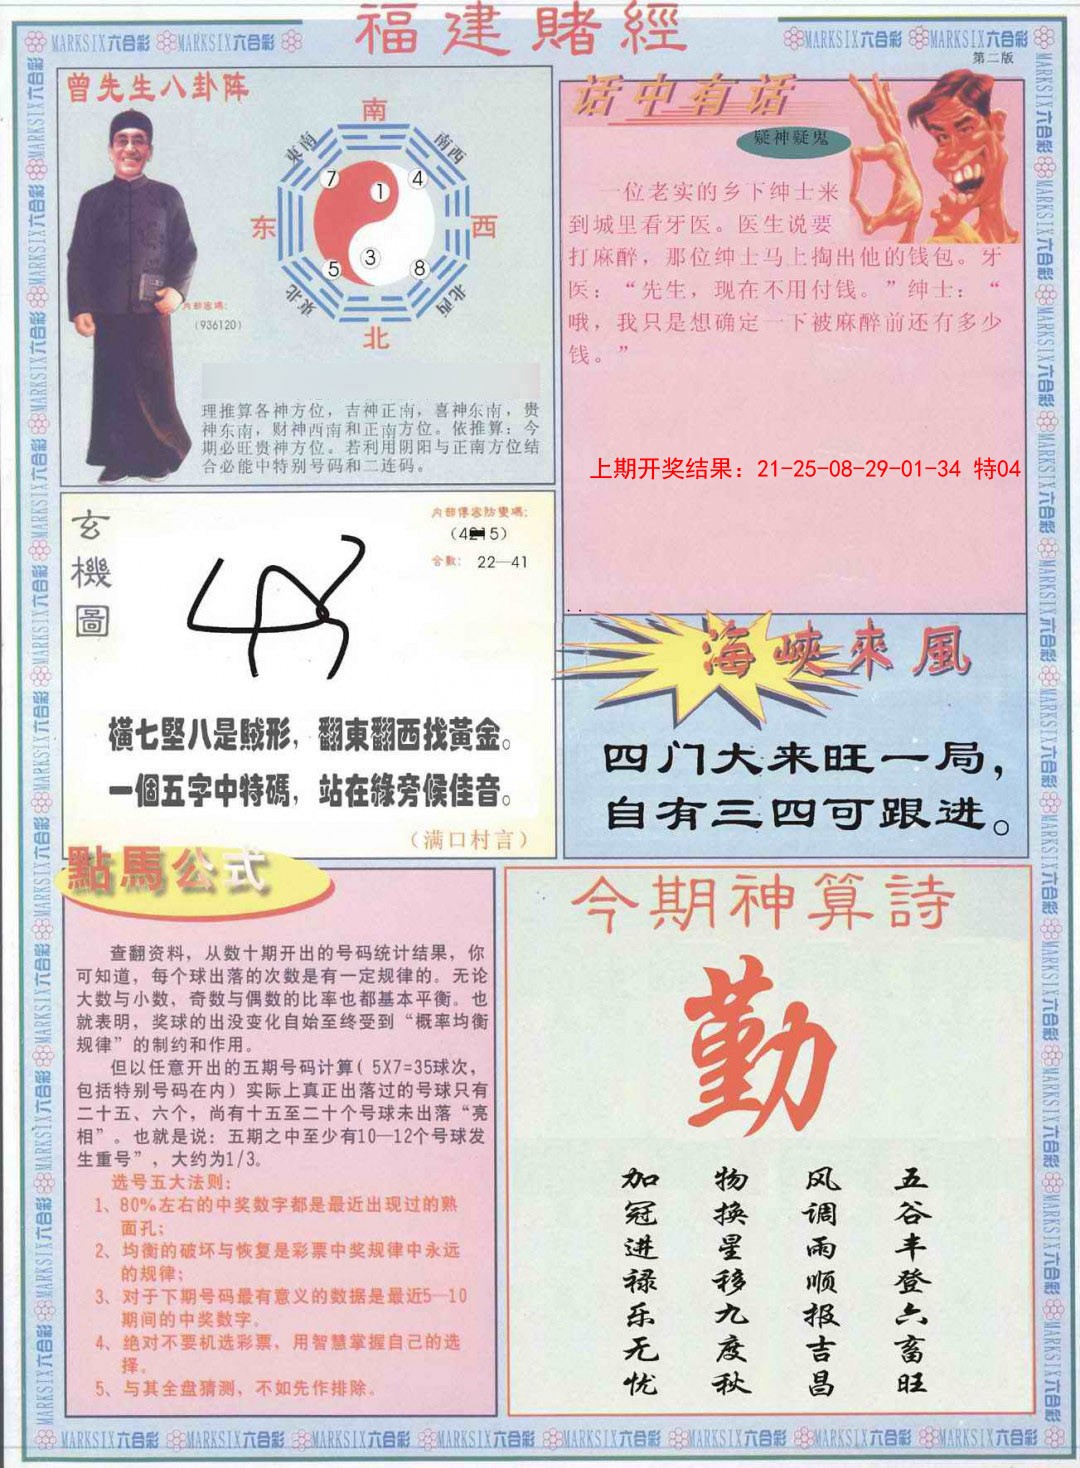 福建賭經
MARKSIX六合彩 MARKSIX六合彩
MARKSIX六合彩 MARKSIX六合彩
第二版
曾先生八卦阵
南
東南
南西
7
1
4
东
西
3
5
8
東北
北西
北
内部密碼：
（936120）
理推算各神方位，吉神正南，喜神东南，贵
神东南，财神西南和正南方位。依推算：今
期必旺贵神方位。若利用阴阳与正南方位结
合必能中特别号码和二连码。
话中有话
疑神疑鬼
一位老实的乡下绅士来
到城里看牙医。医生说要
打麻醉，那位绅士马上掏出他的钱包。牙
医：“先生，现在不用付钱。”绅士：“
哦，我只是想确定一下被麻醉前还有多少
钱。”
上期开奖结果：21-25-08-29-01-34 特04
玄機圖
内部傳密防變碼：
（4215）
合數： 22—41
橫七堅八是賊形，翻東翻西找黃金。
一個五字中特碼，站在綠旁候佳音。
（满口村言）
海峽來風
四门大来旺一局，
自有三四可跟进。
點馬公式
查翻资料，从数十期开出的号码统计结果，你
可知道，每个球出落的次数是有一定规律的。无论
大数与小数，奇数与偶数的比率也都基本平衡。也
就表明，奖球的出没变化自始至终受到“概率均衡
规律”的制约和作用。
但以任意开出的五期号码计算（5X7=35球次，
包括特别号码在内）实际上真正出落过的号球只有
二十五、六个，尚有十五至二十个号球未出落“亮
相”。也就是说：五期之中至少有10—12个号球发
生重号”，大约为1/3。
选号五大法则：
1、80%左右的中奖数字都是最近出现过的熟
面孔；
2、均衡的破坏与恢复是彩票中奖规律中永远
的规律；
3、对于下期号码最有意义的数据是最近5—10
期间的中奖数字。
4、绝对不要机选彩票，用智慧掌握自己的选
择。
5、与其全盘猜测，不如先作排除。
今期神算詩
勤
加冠进禄乐无忧
物换星移九度秋
风调雨顺报吉昌
五谷丰登六畜旺
MARKSIX六合彩 MARKSIX六合彩 MARKSIX六合彩 MARKSIX六合彩 MARKSIX六合彩 MARKSIX六合彩 MARKSIX六合彩 MARKSIX六合彩